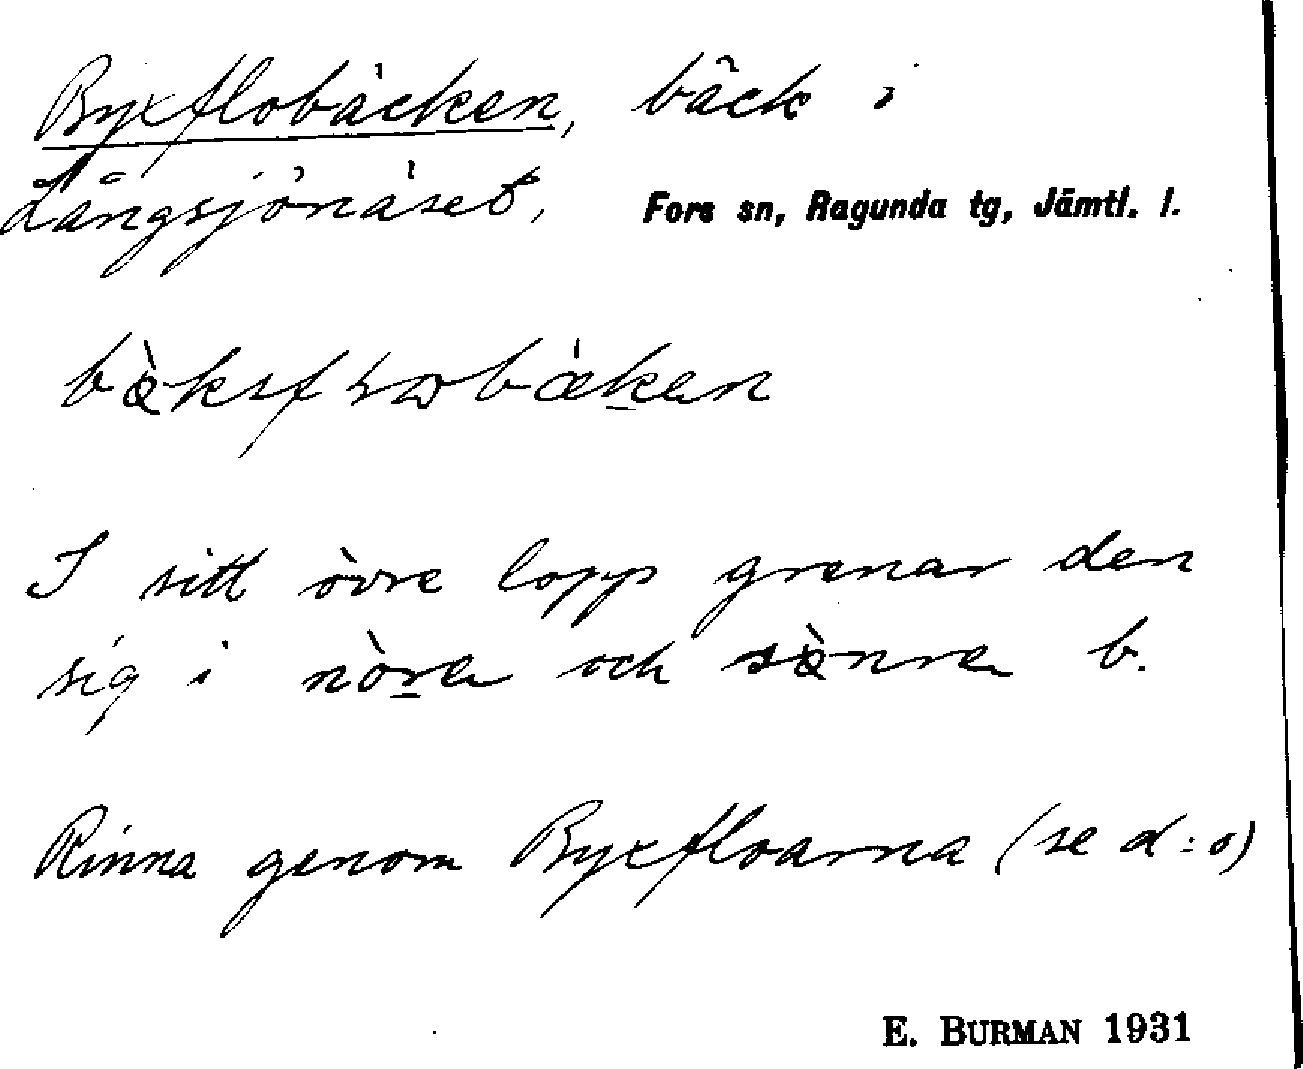 Byxflobäcken, bäck i
Långsjönäset, Fors sn, Ragunda tg, Jämtl. l.
I sitt övre lopp grenar den
sig i och b.
Rinna genom Byxfloarna (se d:o)
E. BURMAN 1931